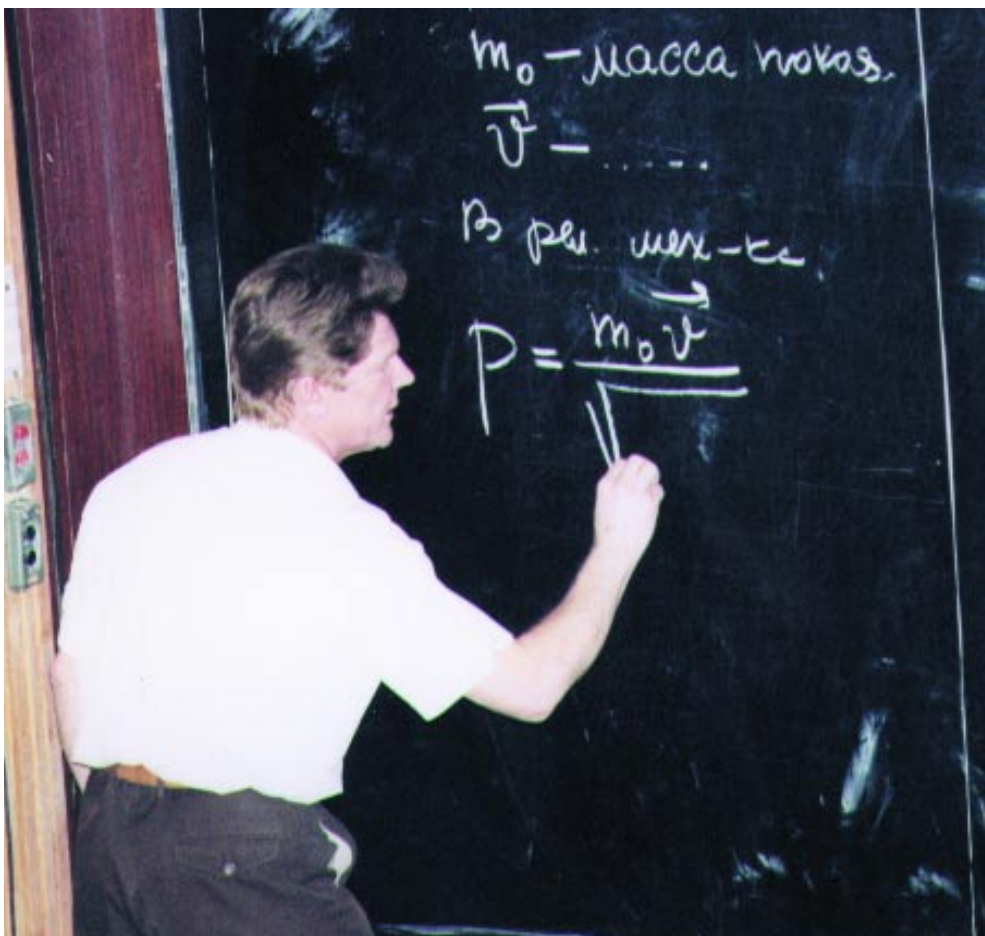 m₀ – масса покоя.
v⃗ – .....
В рел. мех-ке
P = m₀v⃗ / √